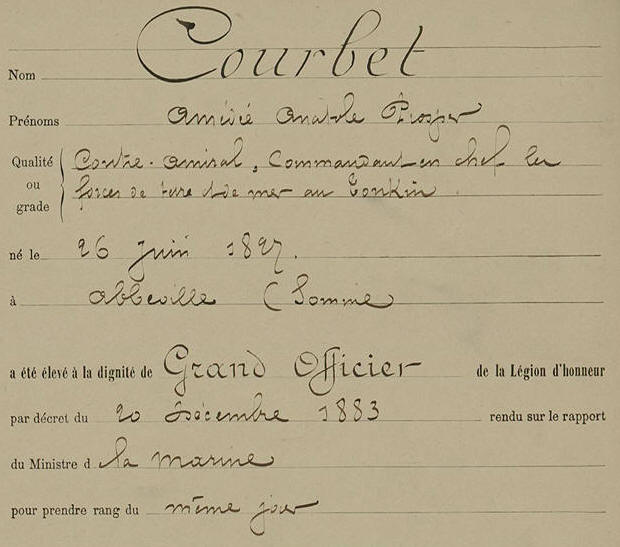 Nom Courbet
Prénoms Amédée Anatole Prosper
Qualité ou grade Contre-amiral, Commandant en chef les
forces de terre et de mer au Tonkin.
né le 26 juin 1827.
à Abbeville (Somme
a été élevé à la dignité de Grand Officier de la Légion d'honneur
par décret du 20 Décembre 1883 rendu sur le rapport
du Ministre d la marine
pour prendre rang du même jour